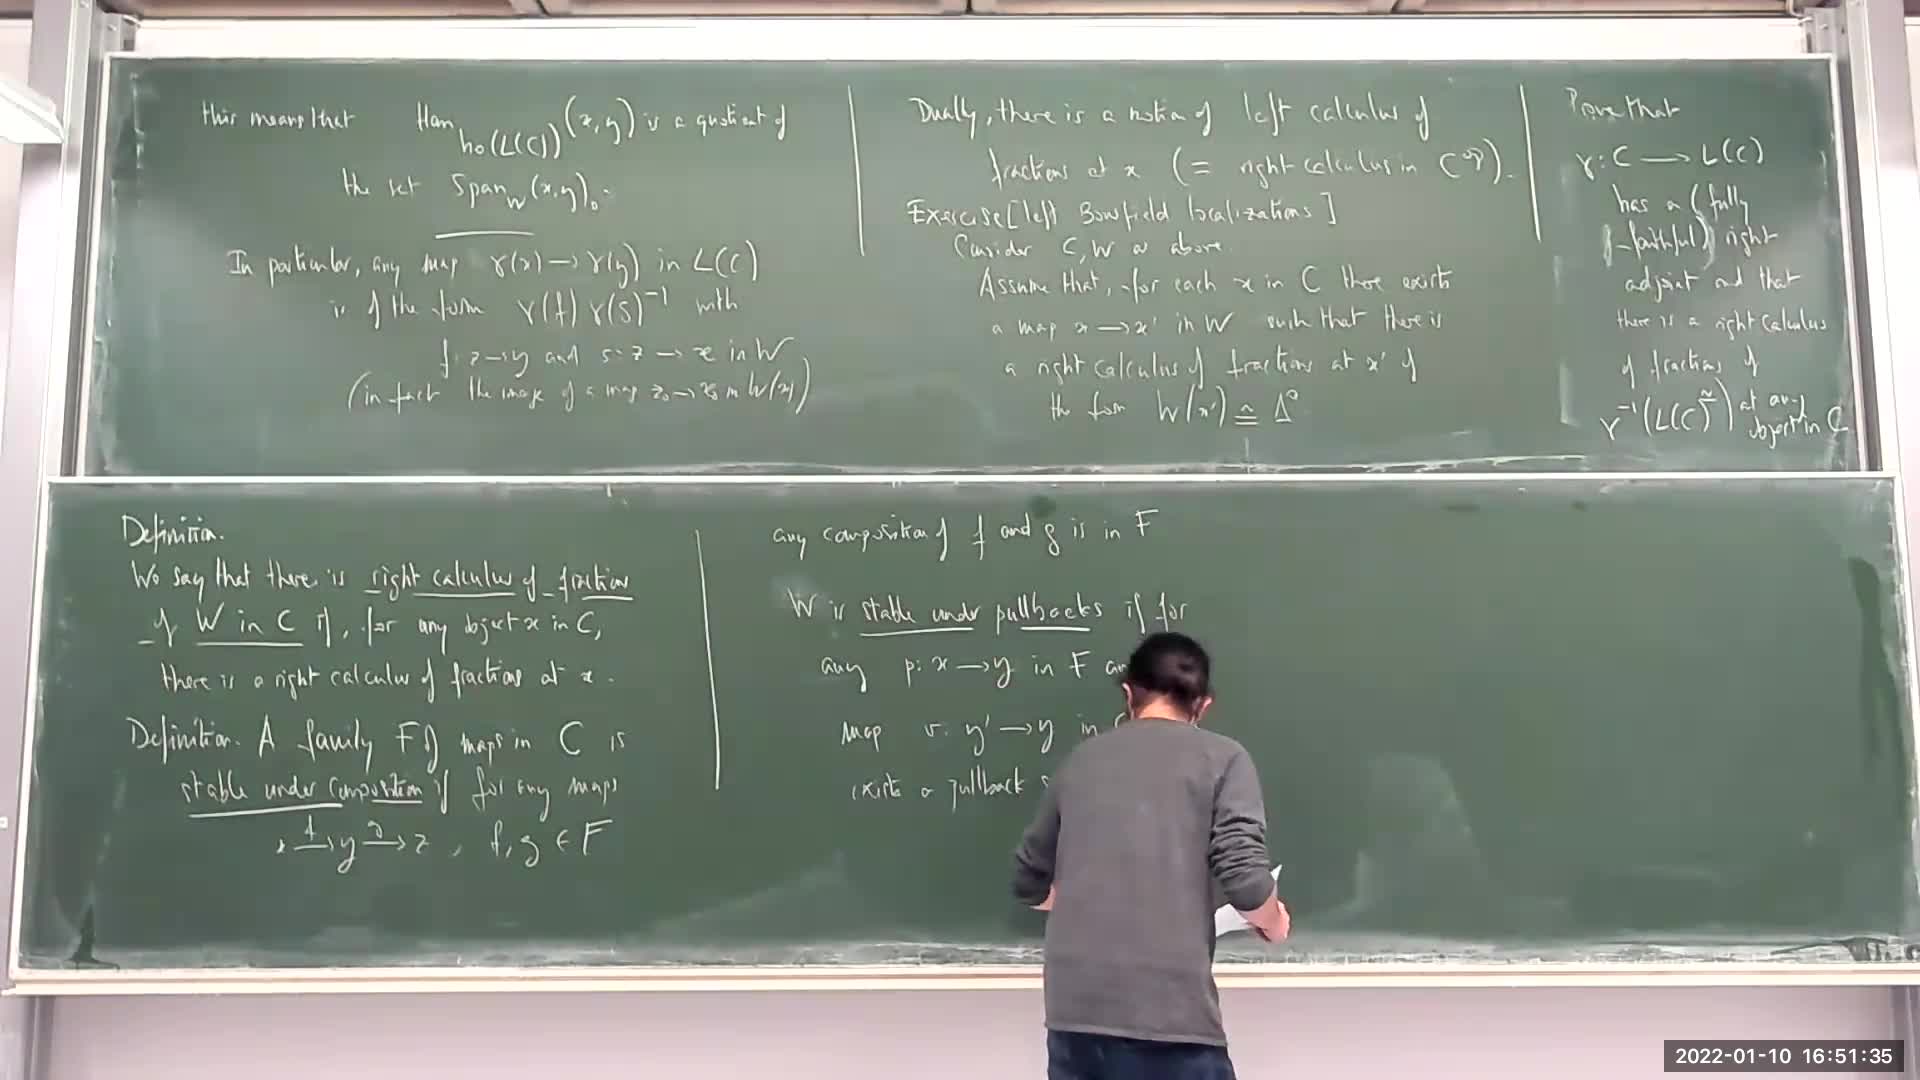 this means that Hom_{ho(L(C))}(x,y) is a quotient of
the set Span_W(x,y)_0.
In particular, any map γ(x)→γ(y) in L(C)
is of the form γ(f)γ(s)^{-1} with
f: z→y and s: z→x in W
(in fact the image of a map z_0→x_0 in W(x))
Dually, there is a notion of left calculus of
fractions at x (= right calculus in C^{op}).
Exercise [left Bousfield localizations]
Consider C, W as above.
Assume that, for each x in C there exists
a map x→x' in W such that there is
a right calculus of fractions at x' of
the form W(x') ≅ Δ^0
Prove that
γ: C → L(C)
has a (fully
faithful) right
adjoint and that
there is a right calculus
of fractions of
γ^{-1}(L(C)^≃) at any
object in C
Definition.
We say that there is right calculus of fractions
of W in C if, for any object x in C,
there is a right calculus of fractions at x.
Definition. A family F of maps in C is
stable under composition if for any maps
x \xrightarrow{f} y \xrightarrow{g} z, f,g ∈ F
any composition of f and g is in F
W is stable under pullbacks if for
any p: x→y in F
map v: y'→y in
exists a pullback
2022-01-10 16:51:35